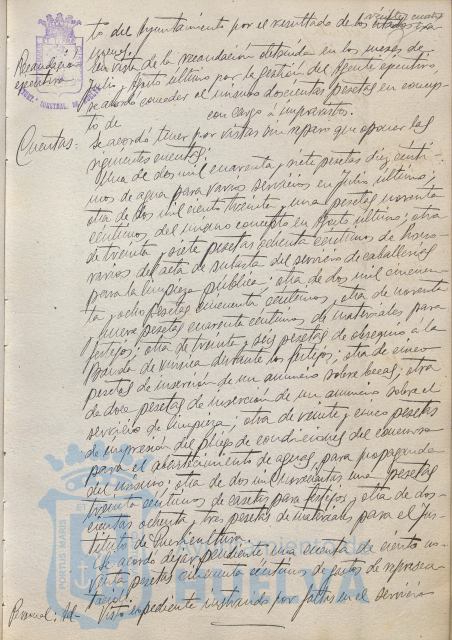 veinte y cuatro
to del Ayuntamiento por el resultado de los citados exa-
menes.
Recaudación
ejecutiva
En vista de la recaudación obtenida en los meses de
Julio y Agosto último por la gestión del Agente ejecutivo
se acordó conceder al mismo doscientas pesetas en concep-
to de con cargo a imprevistos.
Cuentas:
Se acordó tener por vistas sin reparo que oponer las
siguientes cuentas:
Una de dos mil cuarenta y siete pesetas diez cénti-
mos de agua para varios servicios en Julio último;
otra de dos mil ciento treinta y una pesetas noventa
céntimos del mismo concepto en Agosto último; otra
de treinta y siete pesetas ochenta céntimos de hono-
rarios del acta de subasta del servicio de caballerías
para la limpieza pública; otra de dos mil cincuen-
ta y ocho pesetas cincuenta céntimos; otra de noventa
y nueve pesetas cuarenta céntimos de materiales para
festejos; otra de treinta y seis pesetas de obsequio a la
Banda de música durante los festejos; otra de cinco
pesetas de inserción de un anuncio sobre becas; otra
de doce pesetas de inserción de un anuncio sobre el
servicio de limpieza; otra de veinte y cinco pesetas
de impresión del pliego de condiciones del concurso
para el abastecimiento de aguas, para propaganda
del mismo; otra de dos mil una pesetas
treinta céntimos de casetas para festejos y otra de dos-
cientas ochenta y tres pesetas de materiales para el Ins-
tituto de Puericultura.
Se acordó dejar pendiente una cuenta de ciento no-
venta pesetas cincuenta céntimos de gastos de representa-
ción.
Personal:
Visto expediente instruido por faltas en el servicio
PORTUS MARIS
Ayuntamiento de
HUELVA